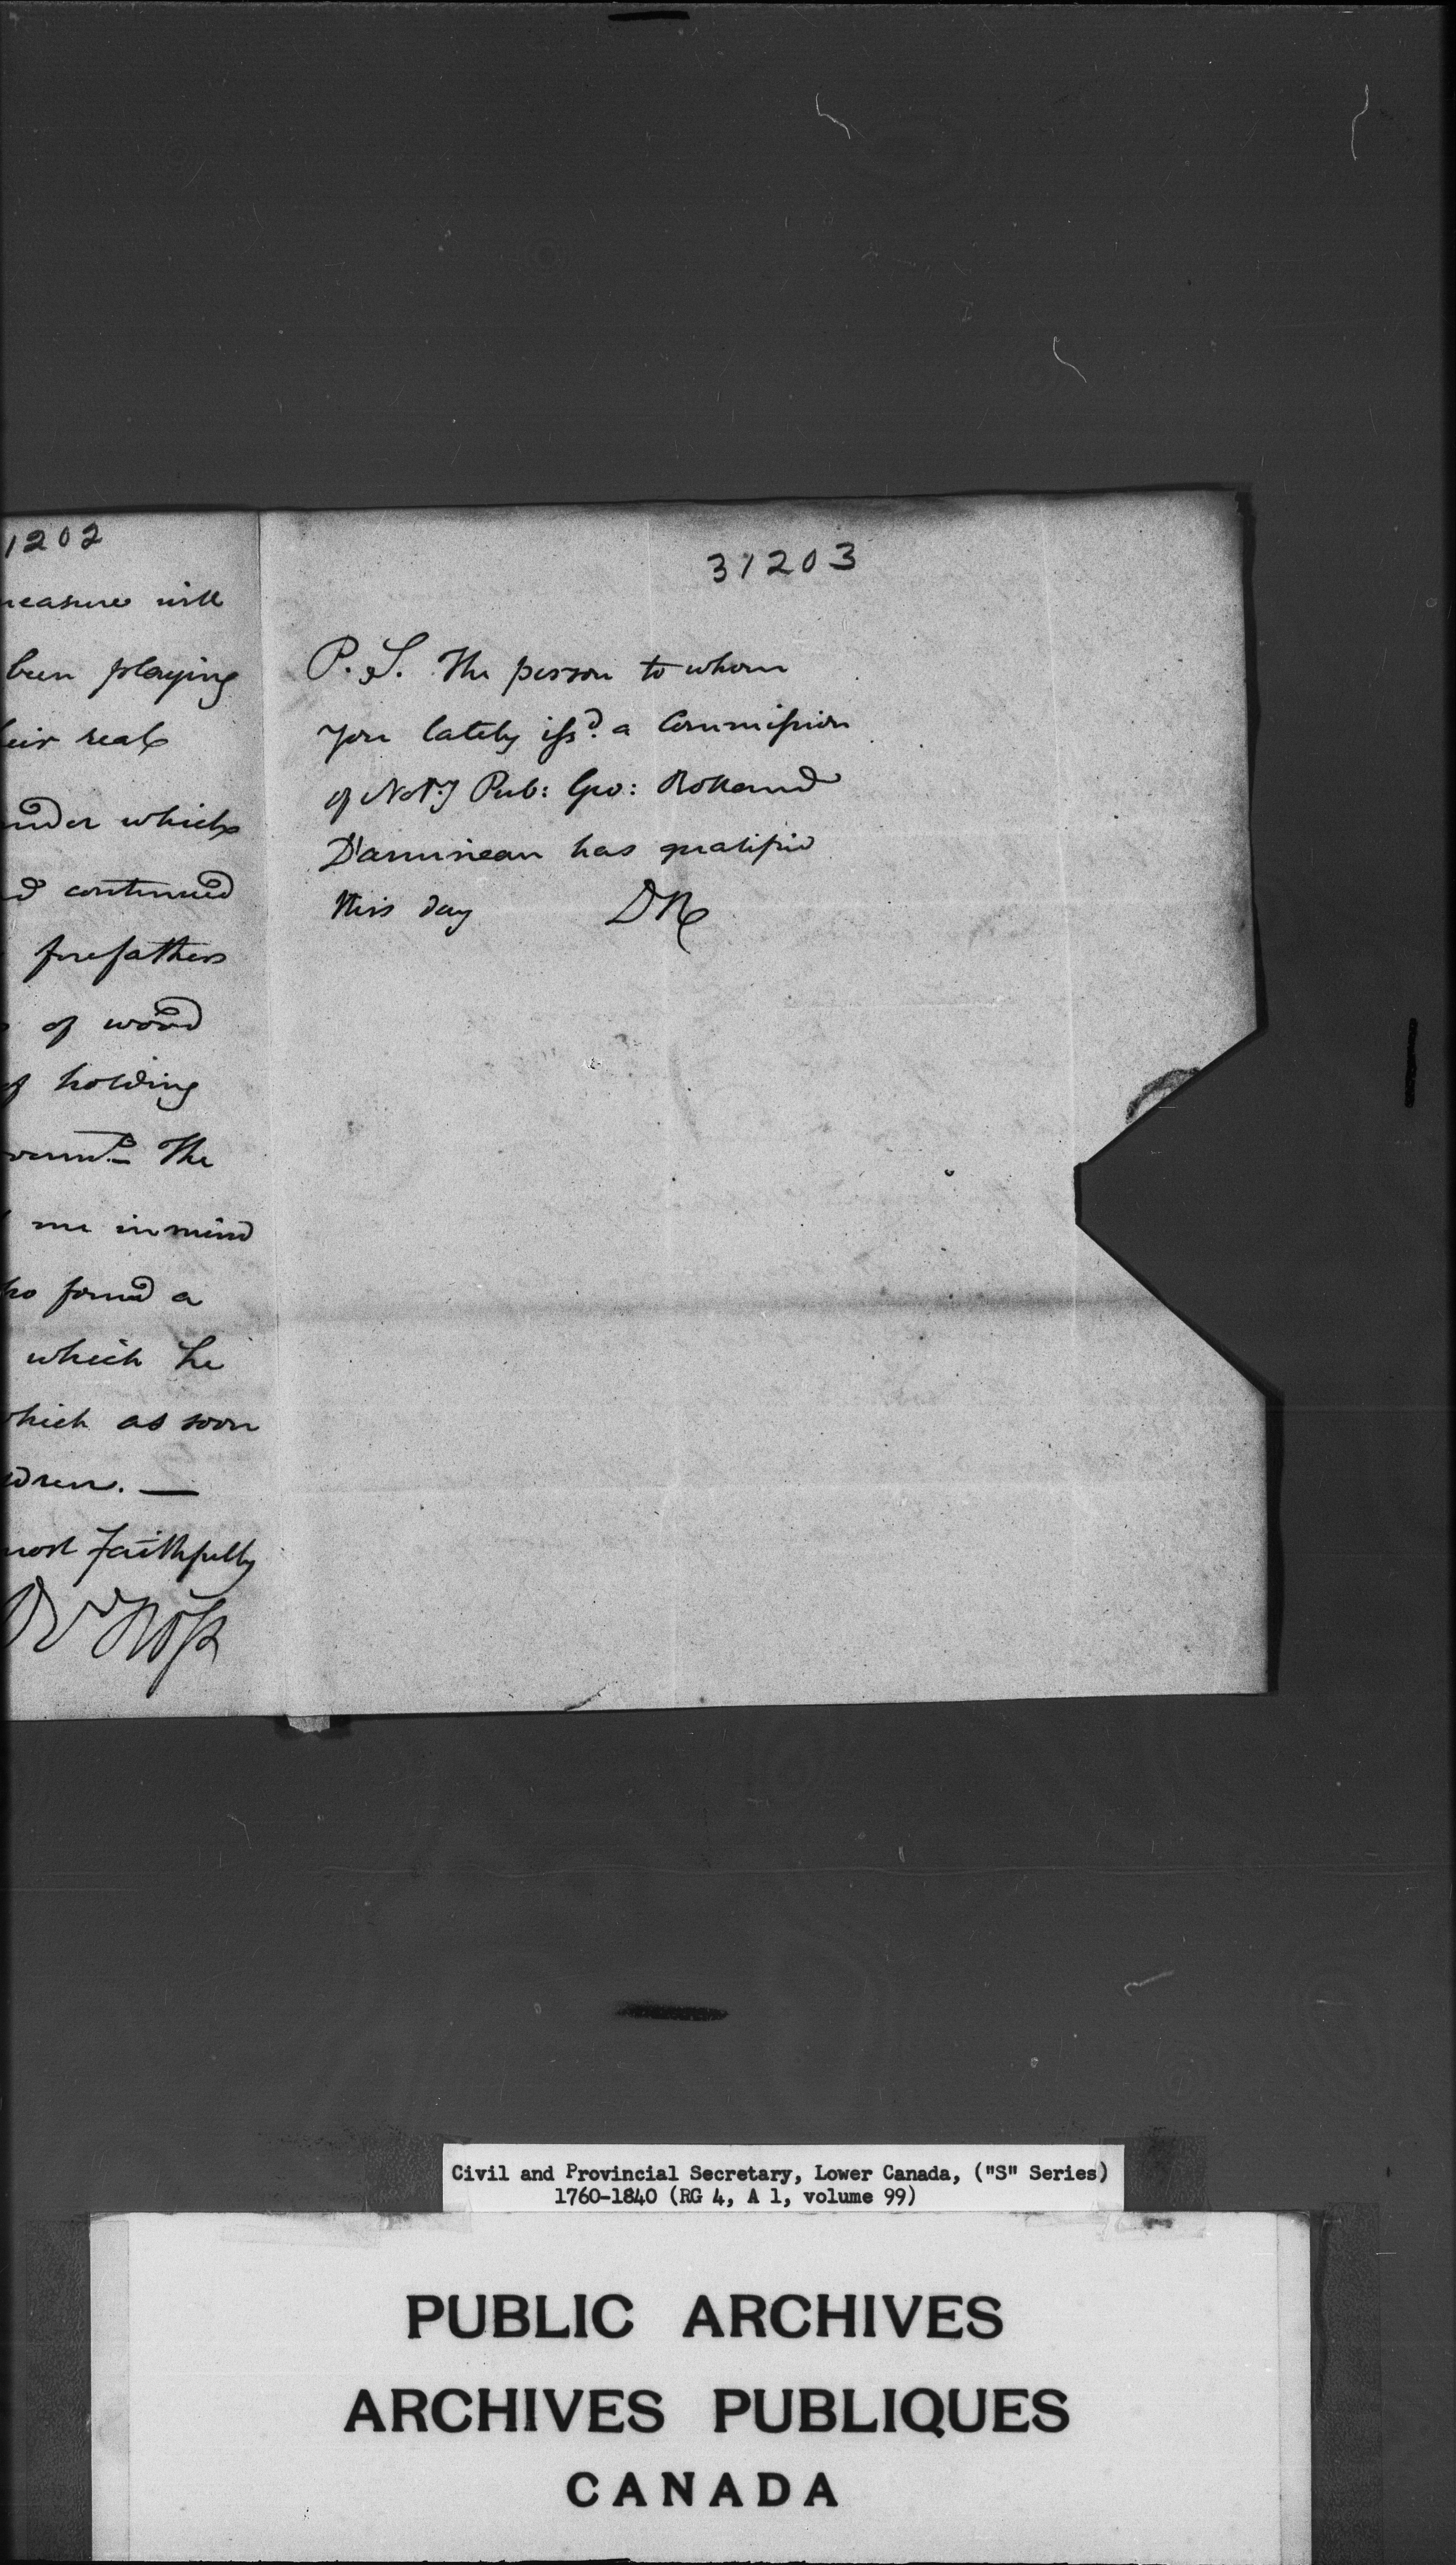 1202
measure will
been playing
their real
under which
d continued
forefathers
of wood
of holding
The
me in mind
who found a
which he
which as soon
dren. —
most faithfully
Dd Ross
31203
P.S. The person to whom
you lately issd. a Commission
of Noty Pub: Geo: Rolland
D'amineau has qualified
this day DR
Civil and Provincial Secretary, Lower Canada, ("S" Series)
1760-1840 (RG 4, A 1, volume 99)
PUBLIC ARCHIVES
ARCHIVES PUBLIQUES
CANADA